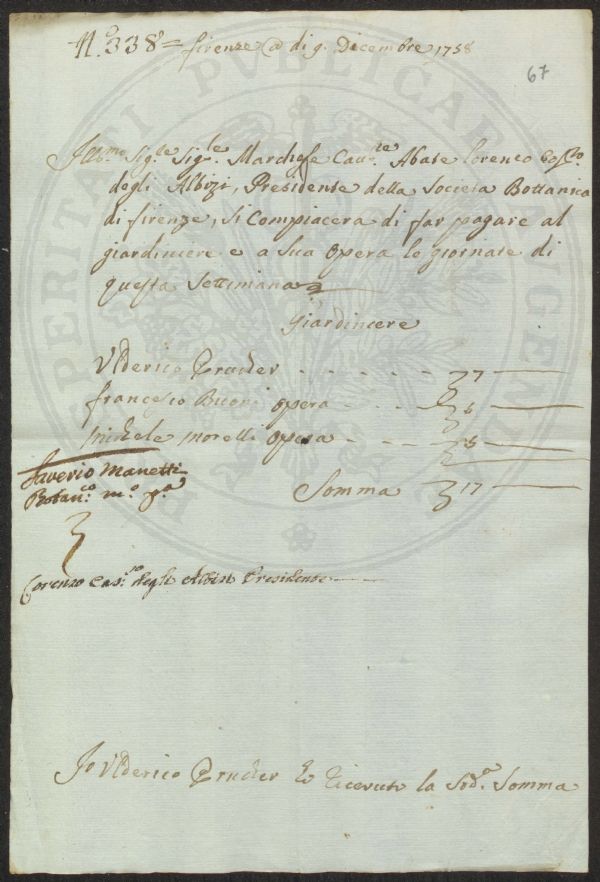 N.° 338 = firenze @ di 9. Decembre 1758
67
Ill.mo Sig.re Sig.re Marchese Cau.re Abate lorenco Cos.co
degli Albizi, Presidente della Societa Bottanica
di firenze, si Compiacera di far pagare al
giardiniere e a sua opera le giornate di
questa Settimana
Giardiniere
Vlderico Prucker - - - - - - 7
francesco Buoni opera - - - 
Michele morelli opera - - - 
Saverio Manetti
Botan.co m.o p.a
Somma 17
Lorenzo Cas.co degli Albizi Presidente
Io Vlderico Prucker ho riceuuto la Sud.a Somma
PROSPERITATI PVBLICAE AVGENDAE